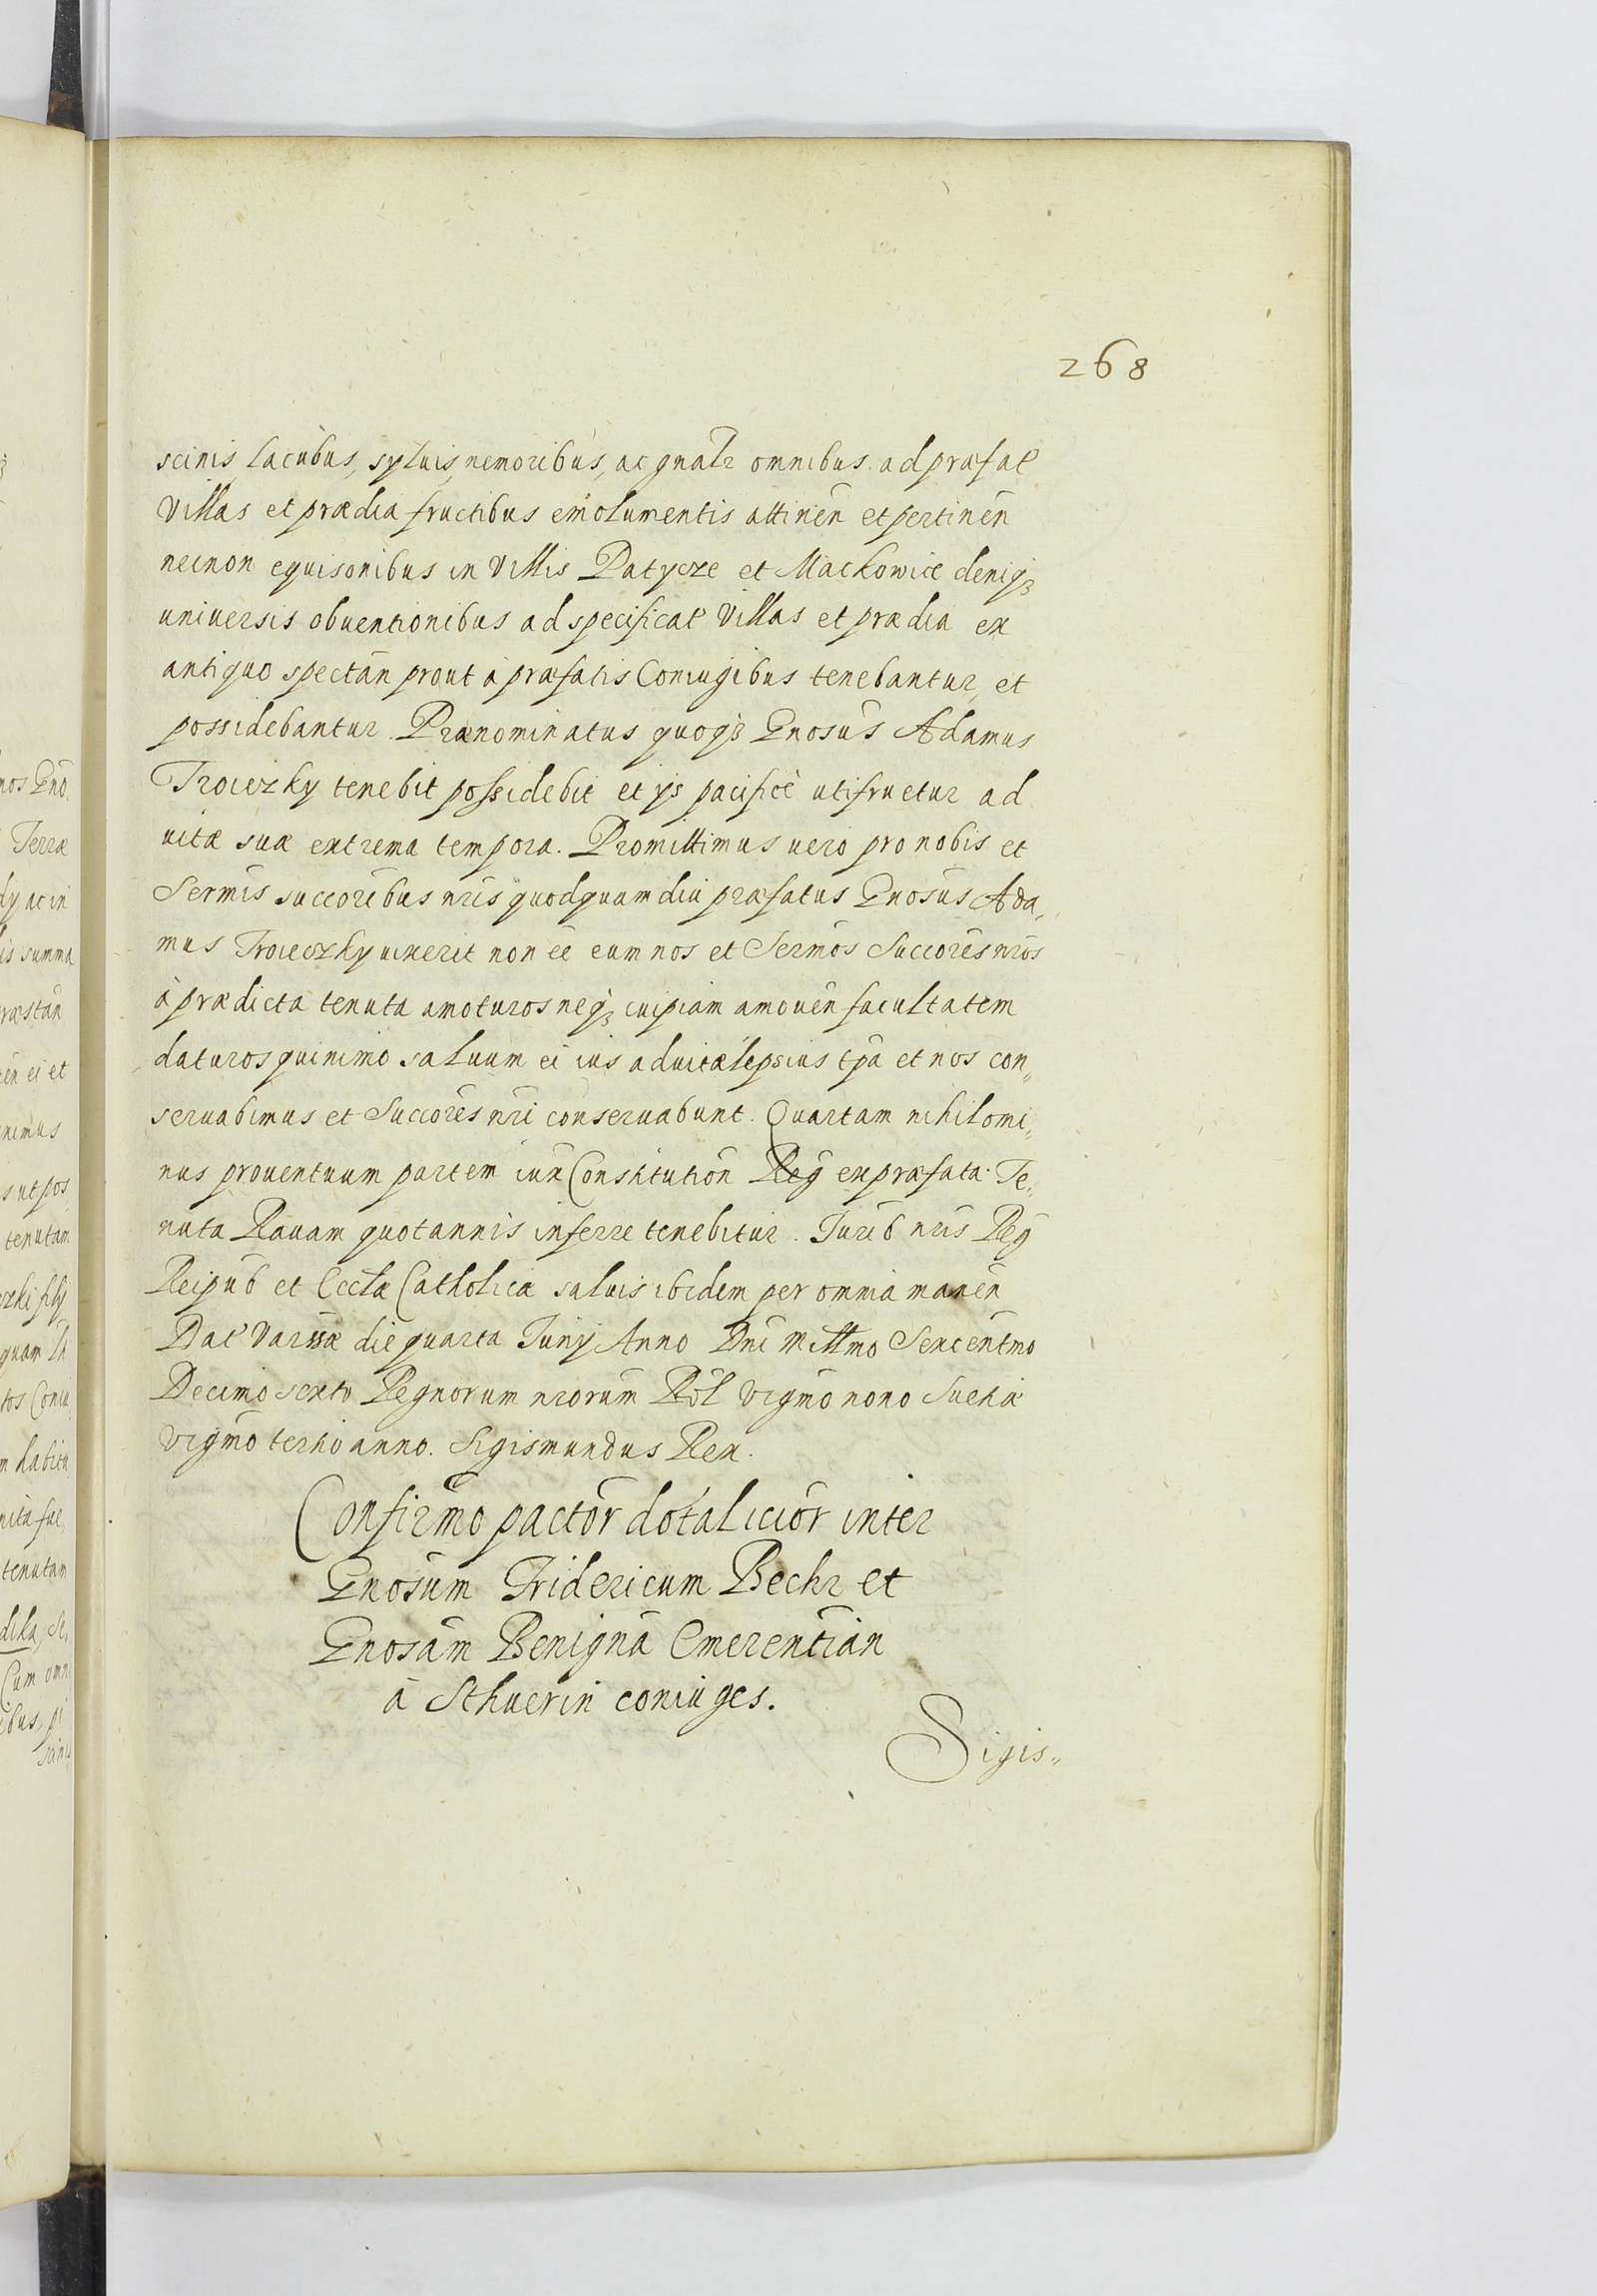 268
scinis lacubus, syluis, nemoribus, ac gnalr omnibus ad præfat
Villas et prædia fructibus emolumentis attinen̄ et pertinen̄
necnon equisonibus in Villis Patycze et Mackowice deniqꝫ
universis obuentionibus ad specificat Villas et prædia ex
antiquo spectan̄ prout à præfatis Coniugibus tenebantur, et
possidebantur. Prænominatus quoqꝫ Gnosus Adamus
Troieczky tenebit possidebit et ijs pacificè utifruetur ad
uitæ suæ extrema tempora. Promittimus uero pro nobis et
Sermis succoribus nris quod quamdiu præfatus Gnosus Ada„
mus Troieczky uixerit non ēe eum nos et Sermos Succores nros
à prædicta tenuta amoturos neqꝫ cuipiam amouen̄ facultatem
daturos quinimo saluum ei ius ad uitæ ipsius tpa et nos con„
seruabimus et Succores nri conseruabunt. Quartam nihilomi„
nus prouentuum partem iux Constitution̄ Reg ex præfata Te„
nuta Rauam quotannis inferre tenebitur. Jurib nris Reg
Reipub et Eccłæ Catholicæ saluis ibidem per omnia manen̄
Dat Varssæ die quarta Junij Anno Dni Millmo Sexcentmo
Decimo sexto Regnorum nrorum Pol vigmo nono Sueciæ
vigmo tertio anno. Sigismundus Rex.
Confirmo pactor dotalicior inter
Gnosum Fridericum Bechr et
Gnosam Benignā Emerentian
à Schuerin coniuges.
Sigis„